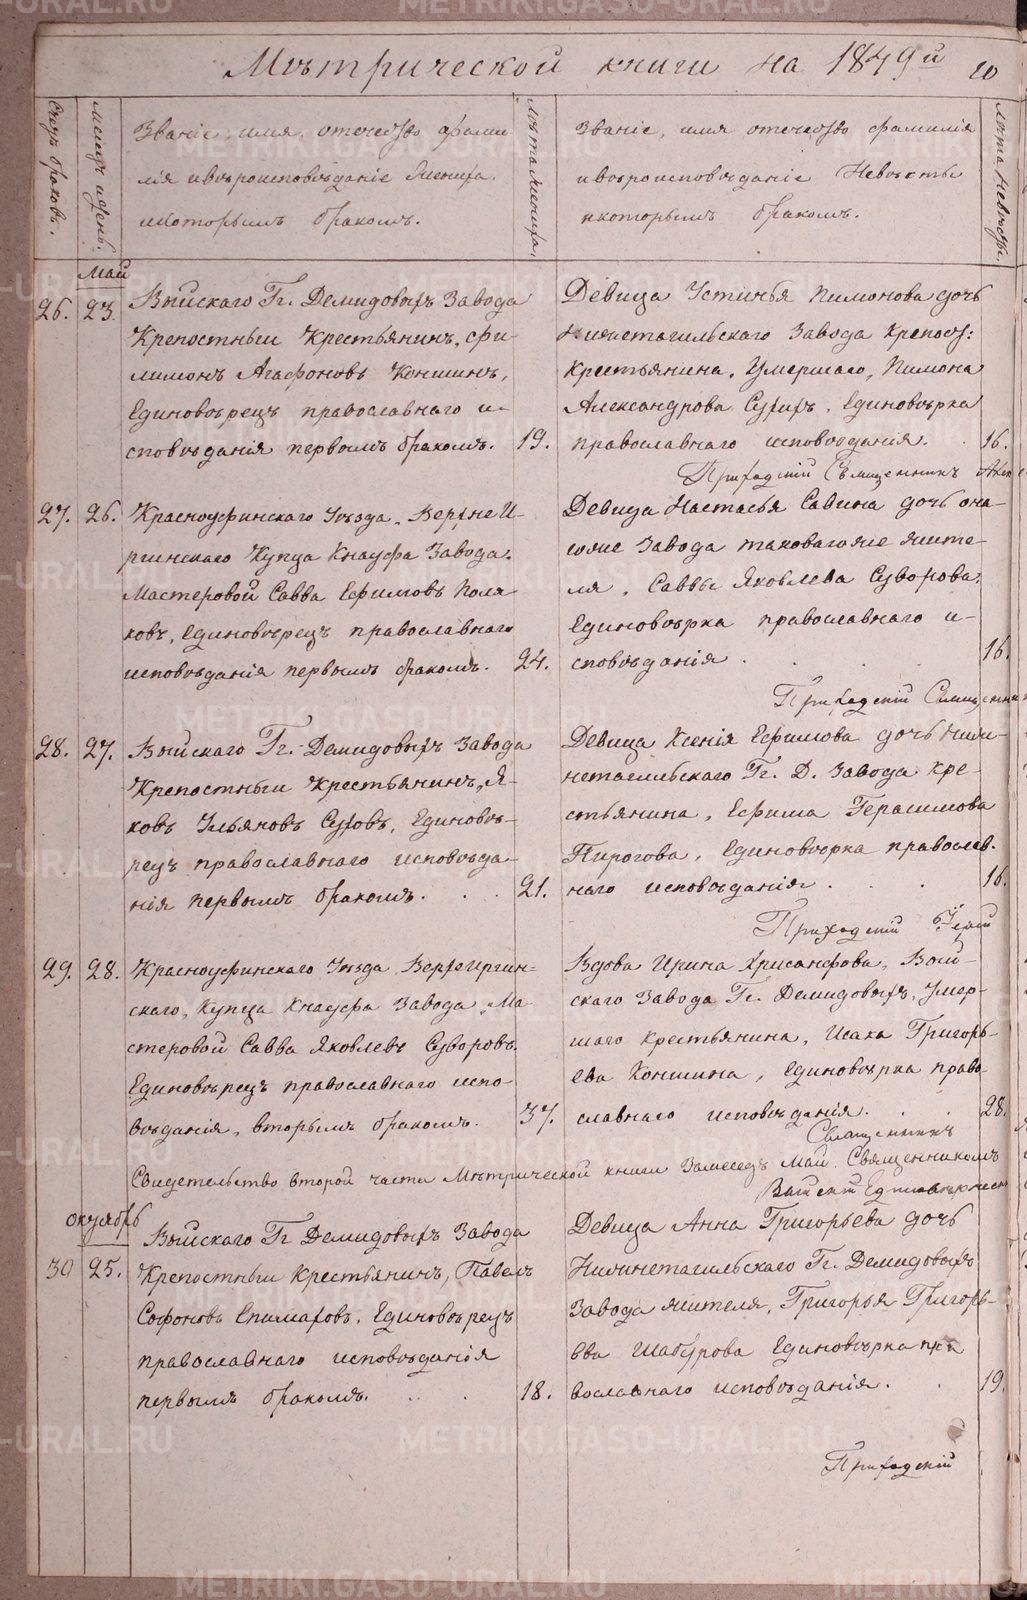 Метрической книги на 1849й
10
Счетъ браковъ.
Месецъ и день.
Званіе, имя, отечество фами
лія и вѣроисповѣданіе Жениха
и которымъ бракомъ.
Лѣта Жениха.
Званіе, имя отечество фамилія
и вѣроисповѣданіе Невѣсты
и которымъ бракомъ.
Лѣта Невѣсты.
Май
26. 23. Выйскаго Гг. Демидовыхъ Завода
Крепостный Крестьянинъ, Фи-
лимонъ Агафоновъ Коншинъ,
Единовѣрецъ православнаго и-
сповѣданія первымъ бракомъ. 19.
Девица Устинья Пимонова дочь
Нижнетагильскаго Завода Крепост:
Крестьянина, Умершаго, Пимона
Александрова Сухихъ, Единовѣрка
православнаго исповѣданія. 16.
Приходскій Священникъ
27. 26. Красноуфинскаго Уѣзда, Верхне И-
ргинскаго Купца Кнауфа Завода.
Мастеровой Савва Ефимовъ Поля
ковъ, Единовѣрецъ православнаго
исповѣданія первымъ бракомъ. 24.
Девица Настасья Савина дочь она-
гоже Завода таковагоже жите-
ля, Саввы Яковлева Суворова.
Единовѣрка православнаго и-
сповѣданія. 16.
Приходскій Священник
28. 27. Выйскаго Гг. Демидовыхъ Завода
Крепостный Крестьянинъ, Я-
ковъ Ульяновъ Суховъ, Единовѣ-
рецъ православнаго исповѣда-
нія первымъ бракомъ. 21.
Девица Ксенія Ефимова дочь Ниж-
нетагильскаго Гг. Д. Завода Кре-
стьянина, Ефима Герасимова
Пирогова, Единовѣрка православ-
наго исповѣданія. 16.
Приходскій
29. 28. Красноуфинскаго Уѣзда Верхеиргин-
скаго, Купца Кнауфа Завода, Ма
стеровой Савва Яковлевъ Суворовъ.
Единовѣрецъ православнаго испо-
вѣданія, вторымъ бракомъ. 37.
Вдова Ирина Хрисанфова, Вый-
скаго Завода Гг. Демидовыхъ, Умер-
шаго Крестьянина, Исака Григорь-
ева Коншина, Единовѣрка право-
славнаго исповѣданія. 28.
Священникъ
Свидетельство второй части Мѣтрической книги За месецъ Май. Священникомъ
Октябрь
30 25. Выйскаго Гг Демидовыхъ Завода
Крепостный Крестьянинъ, Павелъ
Софоновъ Епимаховъ, Единовѣрецъ
православнаго исповѣданія
первымъ бракомъ. 18.
Девица Анна Григорьева дочь
Нижнетагильскаго Гг. Демидовыхъ
Завода жителя, Григорья Григорь-
ева Шабурова Единовѣрка пра
вославнаго исповѣданія. 19.
Приходскій
METRIKI.GASO-URAL.RU